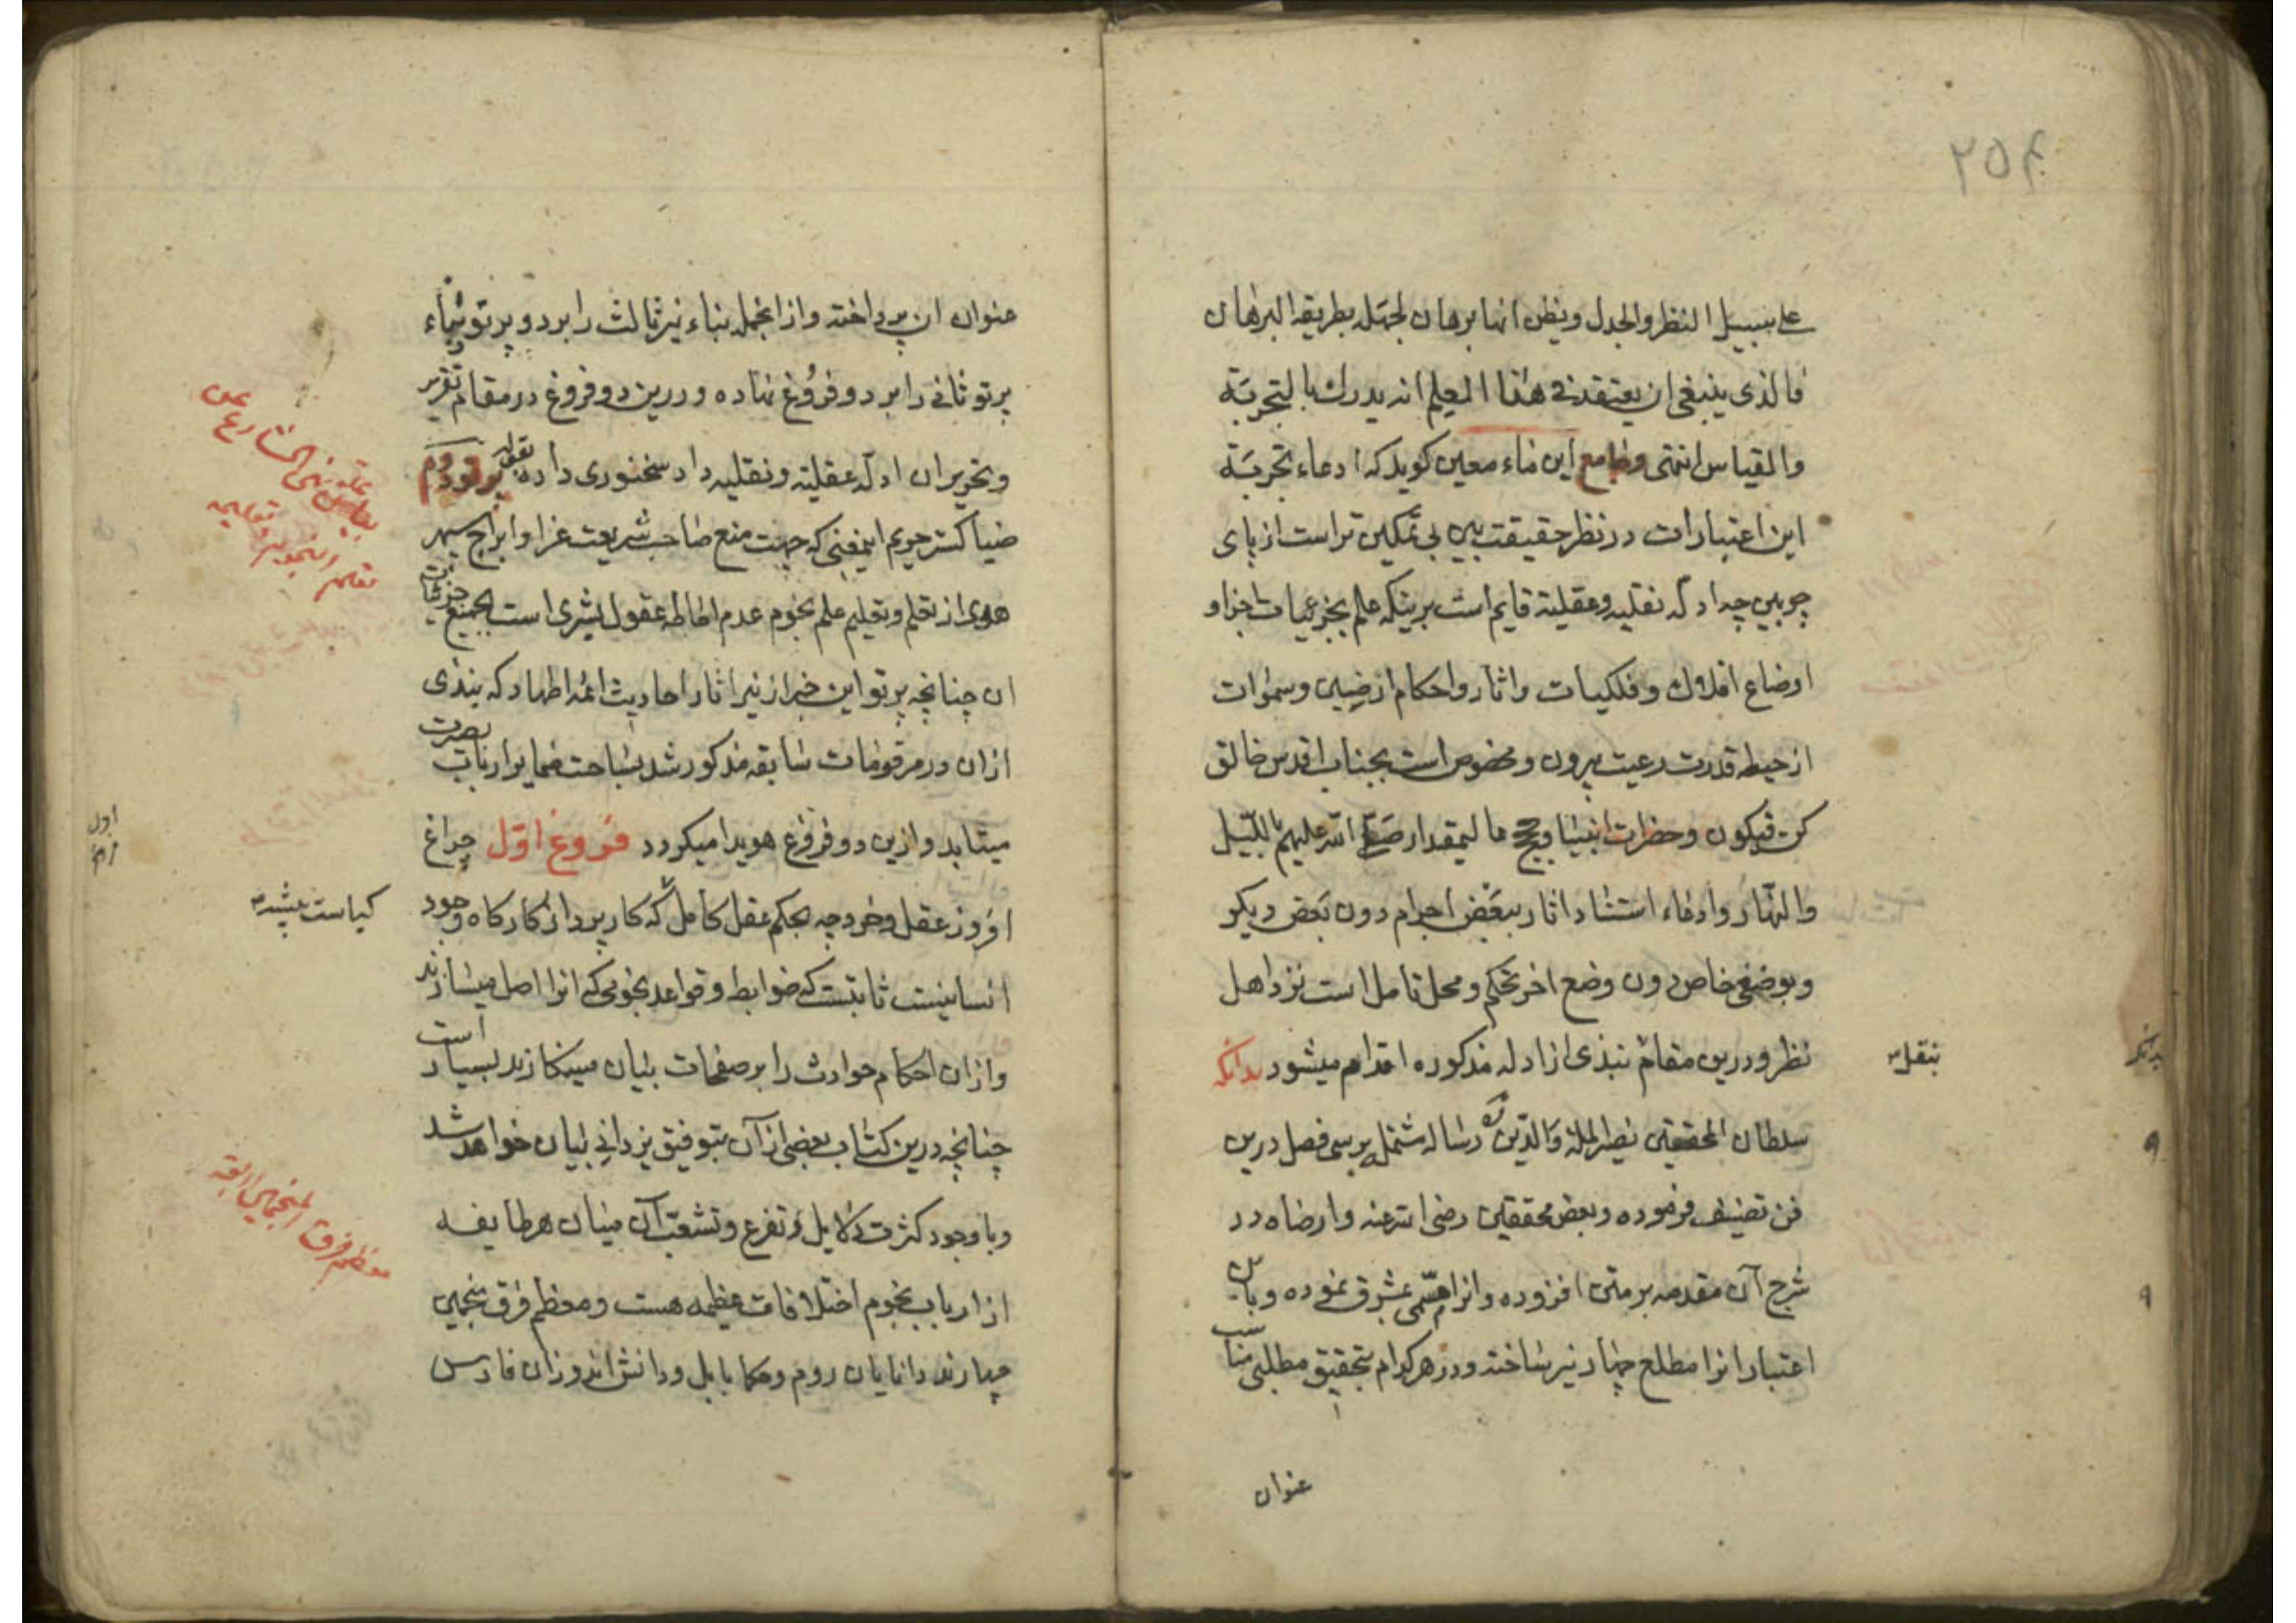 ۲۵۴
علی سبیل النظر والجدل ویظن انها برهان لجهله بطریقه البرهان
فالذی ینبغی ان یعتقد فی هذا العلم انه یدرک بالتجربة
والقیاس انتهی وجامع این ماء معین کوید که ادعاء تجربة
این اعتبارات در نظر حقیقت بین بی تمکین تر است از پای
چوبین چه ادله نقلیه وعقلیة قایم است برینکه علم بجزئیات اجزاو
اوضاع افلاک وفلکیات واثار واحکام ارضیین وسموات
از حیطه قدرت رعیت بیرون ومخصوص است بجناب اقدس خالق
کن فیکون وحضرات انبیا وحجج عالیمقدار صلی الله علیهم باللیل
والنهار وادعاء استناد اثار ببعض اجرام دون بعض دیکر
وبوضعی خاص دون وضع اخر تحکم ومحل تامل است نزد اهل
نظر ودرین مقام نبذی از ادله مذکوره اقدام میشود بدانکه
بنقل
سلطان المحققین نصیر الملة والدین ره رساله مشتمل بر سی فصل درین
فن تصنیف فرموده وبعض محققین رضی الله عنه وارضاه در
شرح آن مقدمه بر متن افزوده وانرا مسمی بمشرق نموده وباین
اعتبار انرا مطلع چهار نیر ساخته ودر هر کدام بتحقیق مطلبی مناسب
عنوان
عنوان ان پرداخته واز انجمله بناء نیر ثالث را بر دو پرتو وبناء
پرتو ثانی را بر دو فروغ نهاده ودرین دو فروغ در مقام تقریر
وتحریر ان ادله عقلیة ونقلیه داد سخنوری داده بقوله پرتو دوم
ضیا کستر جویم اینمعنی که جهت منع صاحب شریعت غرا وابراج سپهر
هدی از تعلم وتعلیم علم نجوم عدم احاطه عقول بشری است بجمیع جزئیات
ان چنانچه پرتو این خبر از نیر اثار احادیث ائمه اطهار که نبذی
ازان در مرقومات سابقه مذکور شد بساحت ضمایر ارباب بصیرت
میتابد وازین دو فروغ هویدا میکردد فروغ اوّل چراغ
افروز عقل وخرد چه بحکم عقل کامل که کارپرداز کارکاه وجود
کیاست پیشه
انسانیست ثابتست که ضوابط وقواعد نجومی که انرا اصل میسازند
وازان احکام حوادث را بر صفحات بیان مینکارند بسیار است
چنانچه درین کتاب بعضی از آن بتوفیق یزدانی بیان خواهد شد
وبا وجود کثرت دلایل وتفرع وتشعب آن میان هر طایفه
از ارباب نجوم اختلافات عظیمه هست ومعظم فرق منجمین
معظم فرق المنجمین اربعه
چهارند دانایان روم وحکما بابل ودانش اندوزان فارس